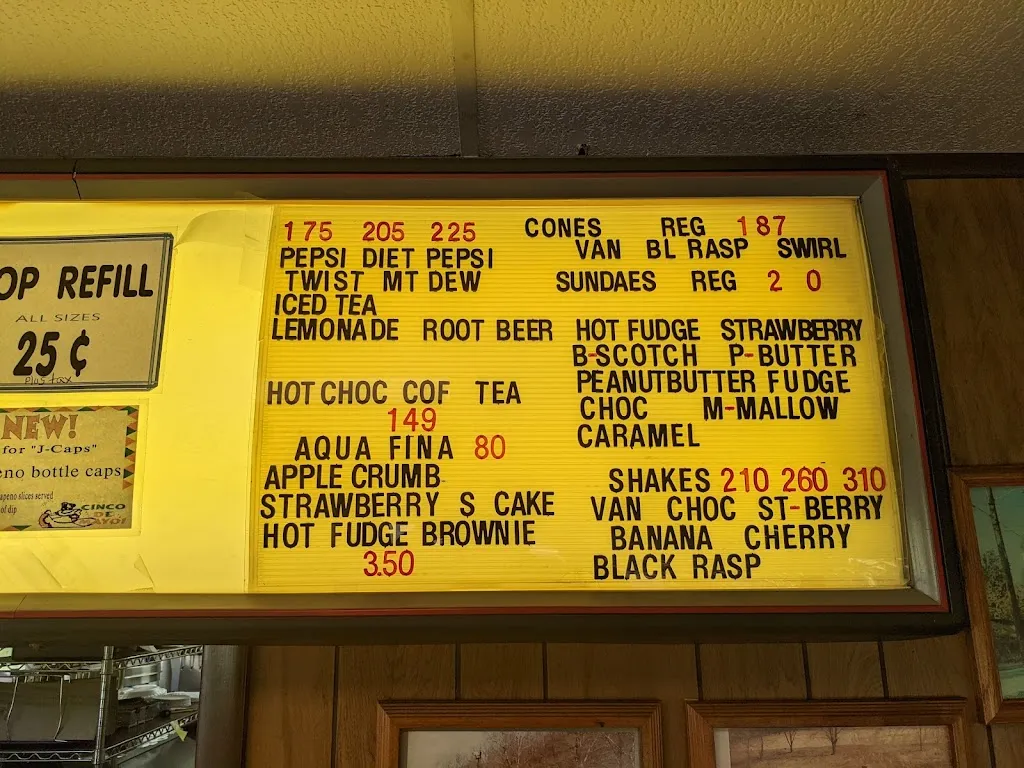 OP REFILL
ALL SIZES
25 ¢
plus tax
NEW!
for "J-Caps"
eno bottle caps
apeno slices served
of dip
CINCO
DE
MAYO!
175 205 225
PEPSI DIET PEPSI
TWIST MT DEW
ICED TEA
LEMONADE ROOT BEER
HOT CHOC COF TEA
149
AQUA FINA 80
APPLE CRUMB
STRAWBERRY S CAKE
HOT FUDGE BROWNIE
3.50
CONES REG 187
VAN BL RASP SWIRL
SUNDAES REG 2 0
HOT FUDGE STRAWBERRY
B-SCOTCH P-BUTTER
PEANUTBUTTER FUDGE
CHOC M-MALLOW
CARAMEL
SHAKES 210 260 310
VAN CHOC ST-BERRY
BANANA CHERRY
BLACK RASP